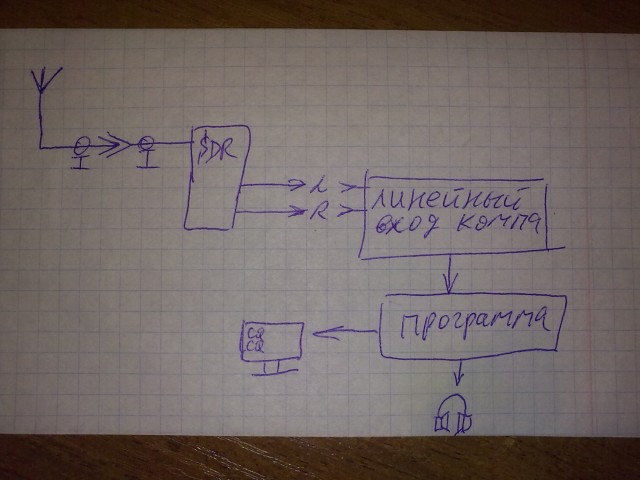 SDR
L
R
линейный
вход компа
программа
CQ
CQ